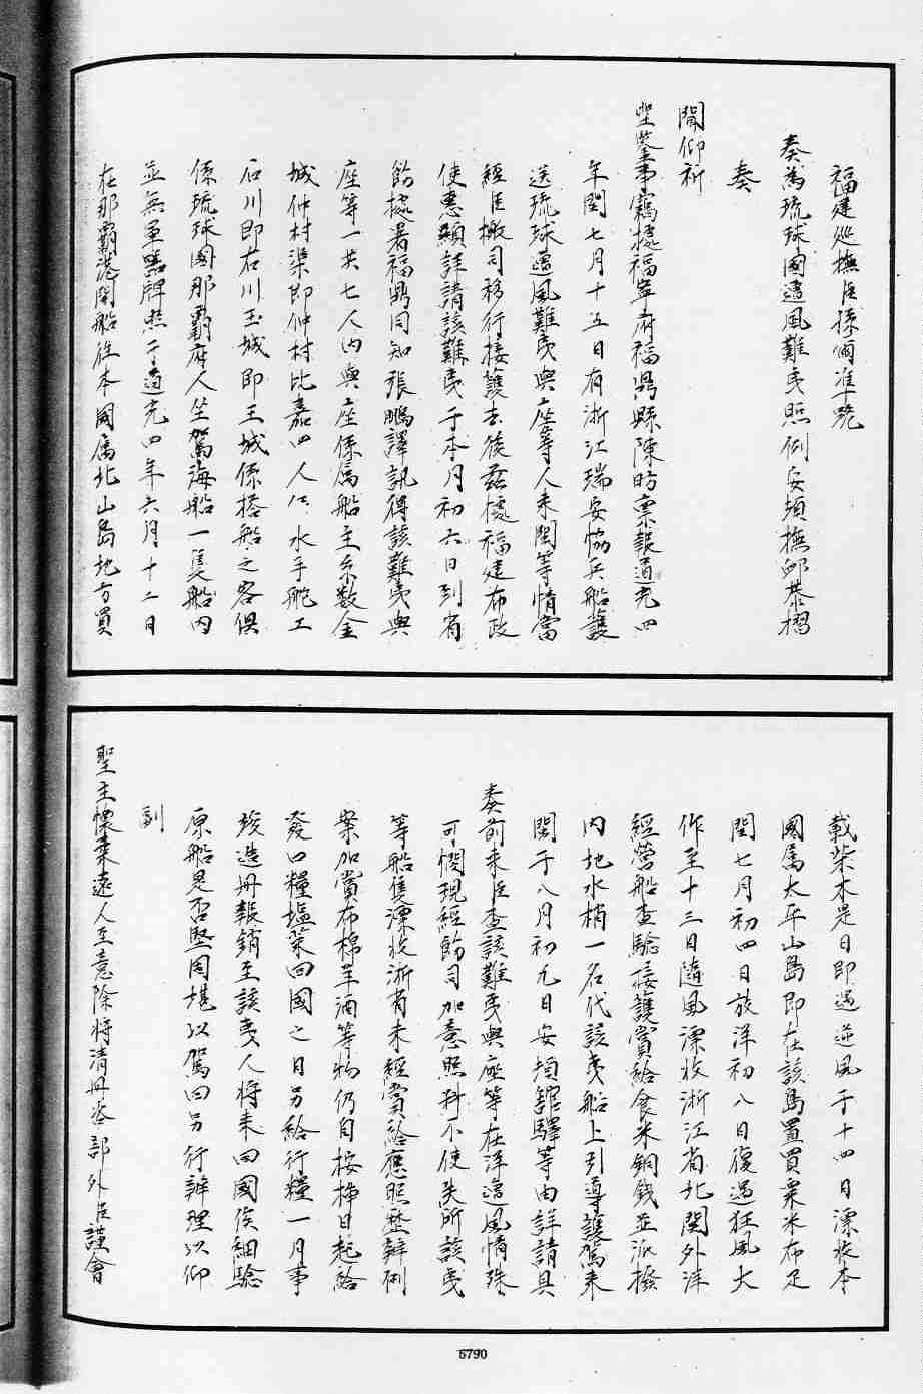 福建巡撫臣孫爾準跪
奏為琉球國遭風難夷照例安頓撫卹恭摺
奏
聞仰祈
聖鑒事竊據福寧府福鼎縣陳昉稟報道光四
年閏七月十五日有浙江瑞安協兵船護
送琉球遭風難夷與座等人來閩等情當
經臣檄司移行接護去後茲據福建布政
使惠顯詳請該難夷于本月初六日到省
飭據署福鼎同知張鵬譯訊得該難夷與
座等一共七人內與座係屬船主糸数金
城仲村渠即仲村比嘉四人俱水手舵工
石川即右川玉城即王城係搭船之客俱
係琉球國那霸府人坐駕海船一隻船內
並無軍器牌照于道光四年六月十二日
在那霸港開船往本國屬北山島地方買
載柴木是日即遇逆風于十四日漂收本
國屬太平山島即在該島置買粟米布疋
閏七月初四日放洋初八日復遇狂風大
作至十三日隨風漂收浙江省北關外洋
經營船查驗接護賞給食米銅錢並派撥
內地水梢一名代該夷船上引導護駕來
閩于八月初九日安頓館驛等由詳請具
奏前來臣查該難夷與座等在洋遭風情殊
可憫現經飭司加意照料不使失所該夷
等船隻漂收浙省未經賞給應照歷辦例
案加賞布棉羊酒等物仍自按挿日起給
發口糧塩菜回國之日另給行糧一月事
竣造册報銷至該夷人將來回國俟細驗
原船是否堅固堪以駕回另行辦理以仰
副
聖主懷柔遠人至意除將清册咨部外臣謹會
5790